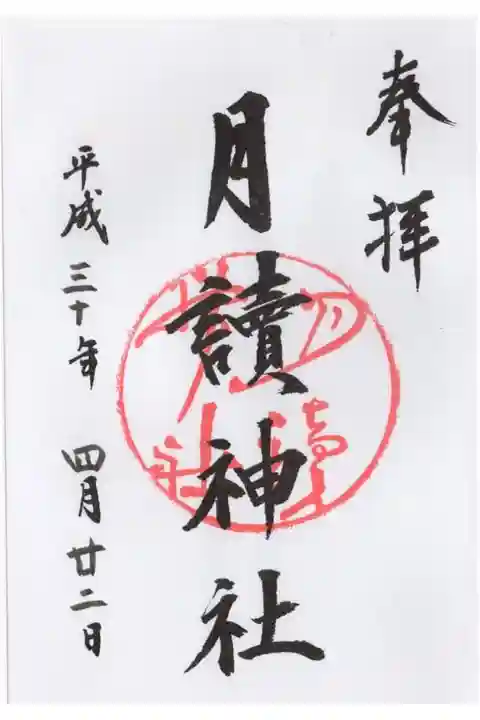 奉拝
月讀神社
平成三十年 四月廿二日